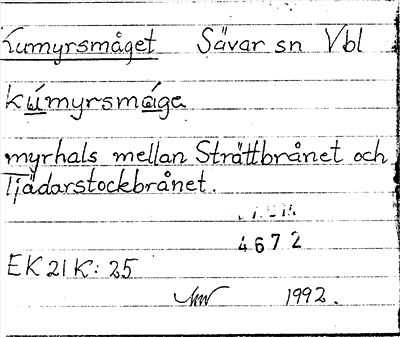 Kumyrsmåget Sävar sn Vbl
kúmyrsmága
myrhals mellan Strättbrånet och
Tjädarstockbrånet.
4672
EK 21 K: 25
1992.